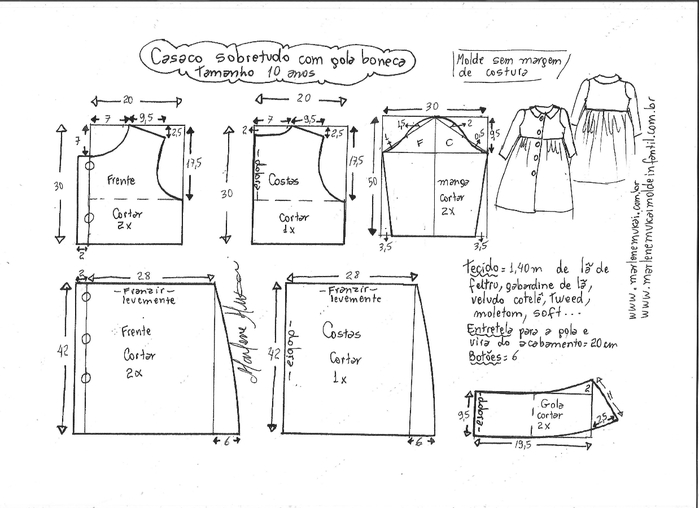 Casaco sobretudo com gola boneca
Tamanho 10 anos
Molde sem margem
de costura
20
7
9,5
7
2,5
17,5
30
Frente
Cortar
2x
2
20
7
9,5
2
2,5
17,5
30
dobra
Costas
Cortar
1x
30
1,5
2
1
0,5
9,5
F
C
50
manga
Cortar
2x
3,5
3,5
2
28
-Franzir-
levemente
42
Frente
Cortar
2x
6
Marlene Mukai
28
-Franzir-
levemente
42
dobra
Costas
Cortar
1x
6
Tecido= 1,40m de lã de
feltro, gabardine de lã,
veludo cotelê, Tweed,
moletom, soft...
Entretela para a gola e
vira do acabamento=20cm
Botões= 6
9,5
dobra
Gola
cortar
2x
2
11
2,5
19,5
www.marlenemukai.com.br
www.marlenemukaimoldeinfantil.com.br